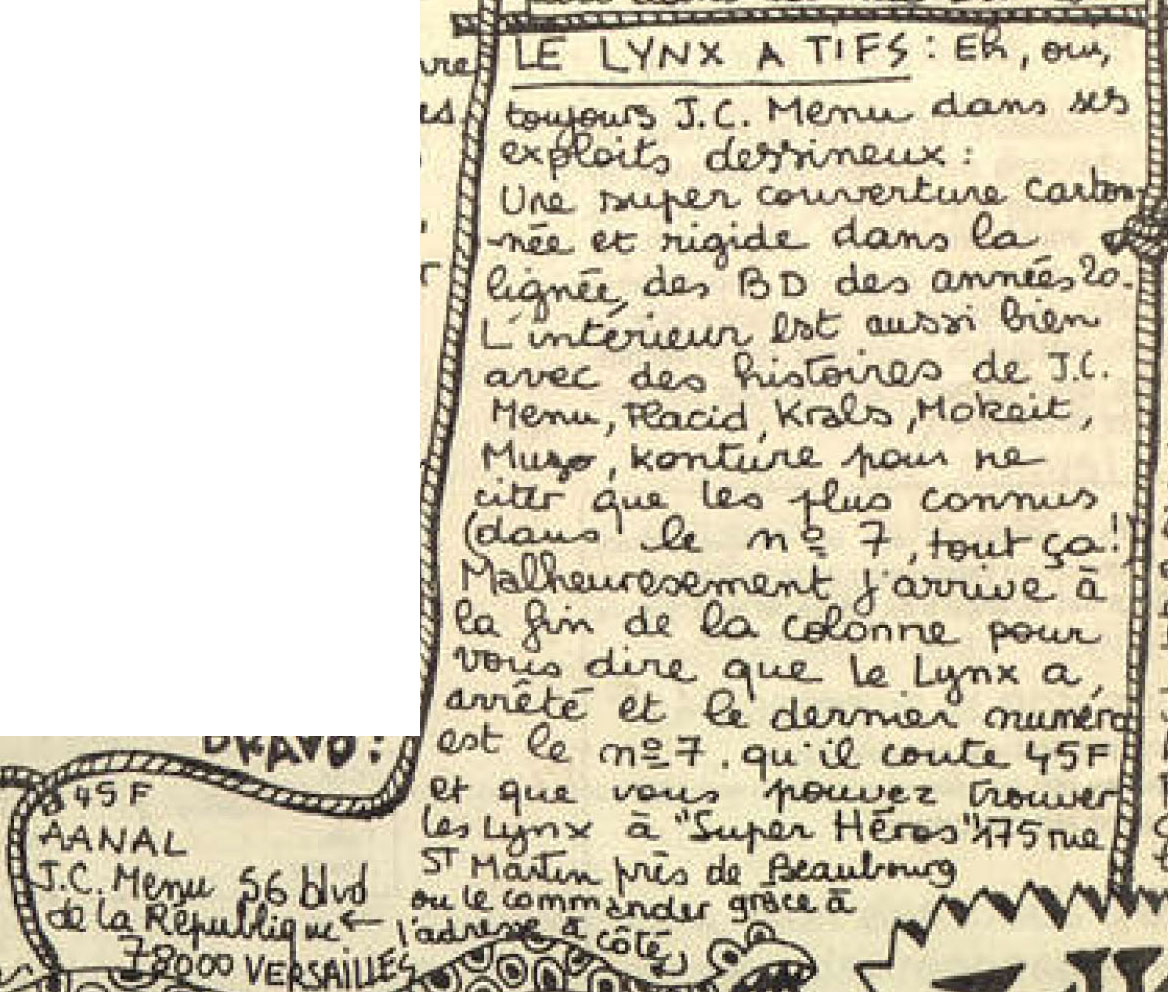 LE LYNX A TIFS : Eh, oui,
toujours J.C. Menu dans ses
exploits dessineux :
Une super couverture carton-
-née et rigide dans la
lignée, des BD des années 20.
L'intérieur est aussi bien
avec des histoires de J.C.
Menu, Placid, Krals, Mokeit,
Muzo, konture pour ne
citer que les plus connus
(dans le nº 7, tout ça!!
Malheuresement j'arrive à
la fin de la colonne pour
vous dire que le Lynx a
arrêté et le dernier numéro
est le nº7. qu'il coute 45F
et que vous pouvez trouver
les Lynx à "Super Héros" 175 rue
ST Martin près de Beaubourg
ou le commander grâce à
l'adresse à côté
BRAVO!
45F
AANAL
J.C. Menu 56 blvd
de la République ←
78000 VERSAILLES